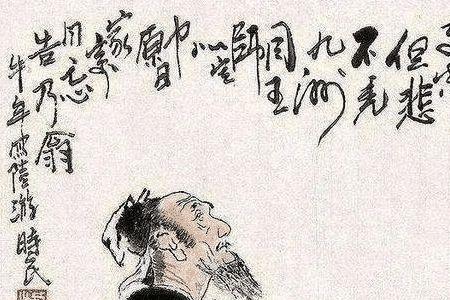 但悲
不見
九州
同王
師
北定
中
原日
家祭
毋忘
告乃翁
午年寫陸游 時民